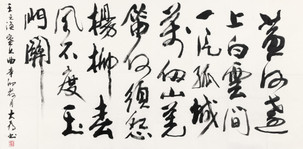 黄河遠
上白雲間
一片孤城
萬仞山羌
笛何須怨
楊柳春
風不度玉
門關
王之渙